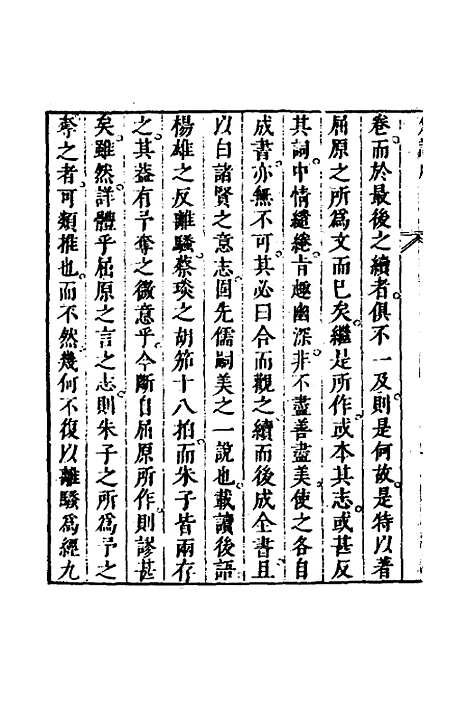 卷而於最後之續者俱不一及則是何故是特以著
屈原之所爲文而已矣繼是所作或本其志或甚反
其詞中情繾綣旨趣幽深非不盡善盡美使之各自
成書亦無不可其必曰合而觀之續而後成全書且
以白諸賢之意志固先儒嗣美之一說也載讀後語
楊雄之反離騷蔡琰之胡笳十八拍而朱子皆兩存
之其葢有予奪之微意乎今斷自屈原所作則謬甚
矣雖然詳體乎屈原之言之志則朱子之所爲予之
奪之者可類推也而不然幾何不復以離騷爲經九